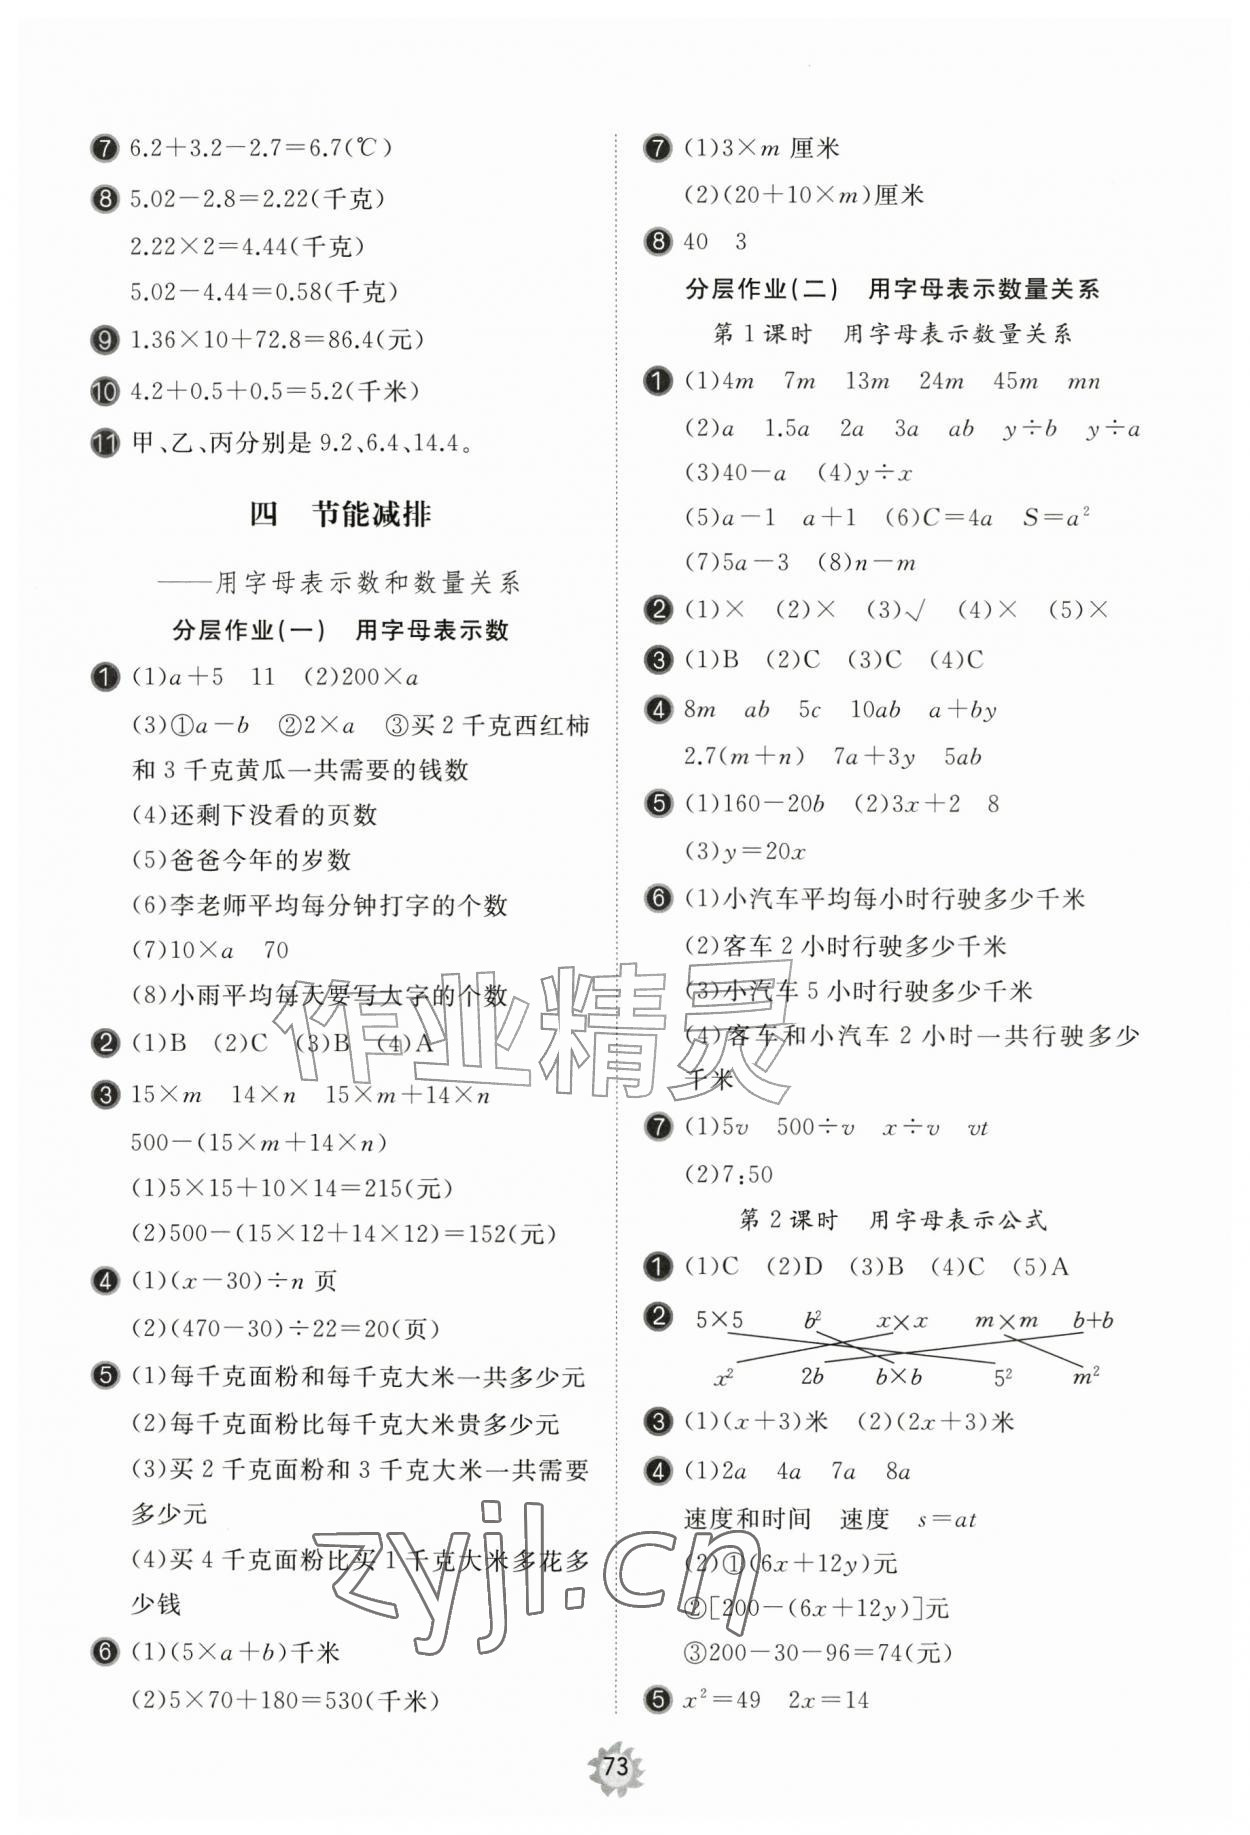 7 6.2+3.2-2.7=6.7(℃)
8 5.02-2.8=2.22(千克)
2.22×2=4.44(千克)
5.02-4.44=0.58(千克)
9 1.36×10+72.8=86.4(元)
10 4.2+0.5+0.5=5.2(千米)
11 甲、乙、丙分别是 9.2、6.4、14.4。
四 节能减排
——用字母表示数和数量关系
分层作业(一) 用字母表示数
1 (1)a+5 11 (2)200×a
(3)①a-b ②2×a ③买 2 千克西红柿
和 3 千克黄瓜一共需要的钱数
(4)还剩下没看的页数
(5)爸爸今年的岁数
(6)李老师平均每分钟打字的个数
(7)10×a 70
(8)小雨平均每天要写大字的个数
2 (1)B (2)C (3)B (4)A
3 15×m 14×n 15×m+14×n
500-(15×m+14×n)
(1)5×15+10×14=215(元)
(2)500-(15×12+14×12)=152(元)
4 (1)(x-30)÷n 页
(2)(470-30)÷22=20(页)
5 (1)每千克面粉和每千克大米一共多少元
(2)每千克面粉比每千克大米贵多少元
(3)买 2 千克面粉和 3 千克大米一共需要
多少元
(4)买 4 千克面粉比买 1 千克大米多花多
少钱
6 (1)(5×a+b)千米
(2)5×70+180=530(千米)
7 (1)3×m 厘米
(2)(20+10×m)厘米
8 40 3
分层作业(二) 用字母表示数量关系
第 1 课时 用字母表示数量关系
1 (1)4m 7m 13m 24m 45m mn
(2)a 1.5a 2a 3a ab y÷b y÷a
(3)40-a (4)y÷x
(5)a-1 a+1 (6)C=4a S=a²
(7)5a-3 (8)n-m
2 (1)× (2)× (3)√ (4)× (5)×
3 (1)B (2)C (3)C (4)C
4 8m ab 5c 10ab a+by
2.7(m+n) 7a+3y 5ab
5 (1)160-20b (2)3x+2 8
(3)y=20x
6 (1)小汽车平均每小时行驶多少千米
(2)客车 2 小时行驶多少千米
(3)小汽车 5 小时行驶多少千米
(4)客车和小汽车 2 小时一共行驶多少
千米
7 (1)5v 500÷v x÷v vt
(2)7:50
第 2 课时 用字母表示公式
1 (1)C (2)D (3)B (4)C (5)A
2 5×5 b² x×x m×m b+b
x² 2b b×b 5² m²
3 (1)(x+3)米 (2)(2x+3)米
4 (1)2a 4a 7a 8a
速度和时间 速度 s=at
(2)①(6x+12y)元
②[200-(6x+12y)]元
③200-30-96=74(元)
5 x²=49 2x=14
73
作业精灵
zyjl.cn